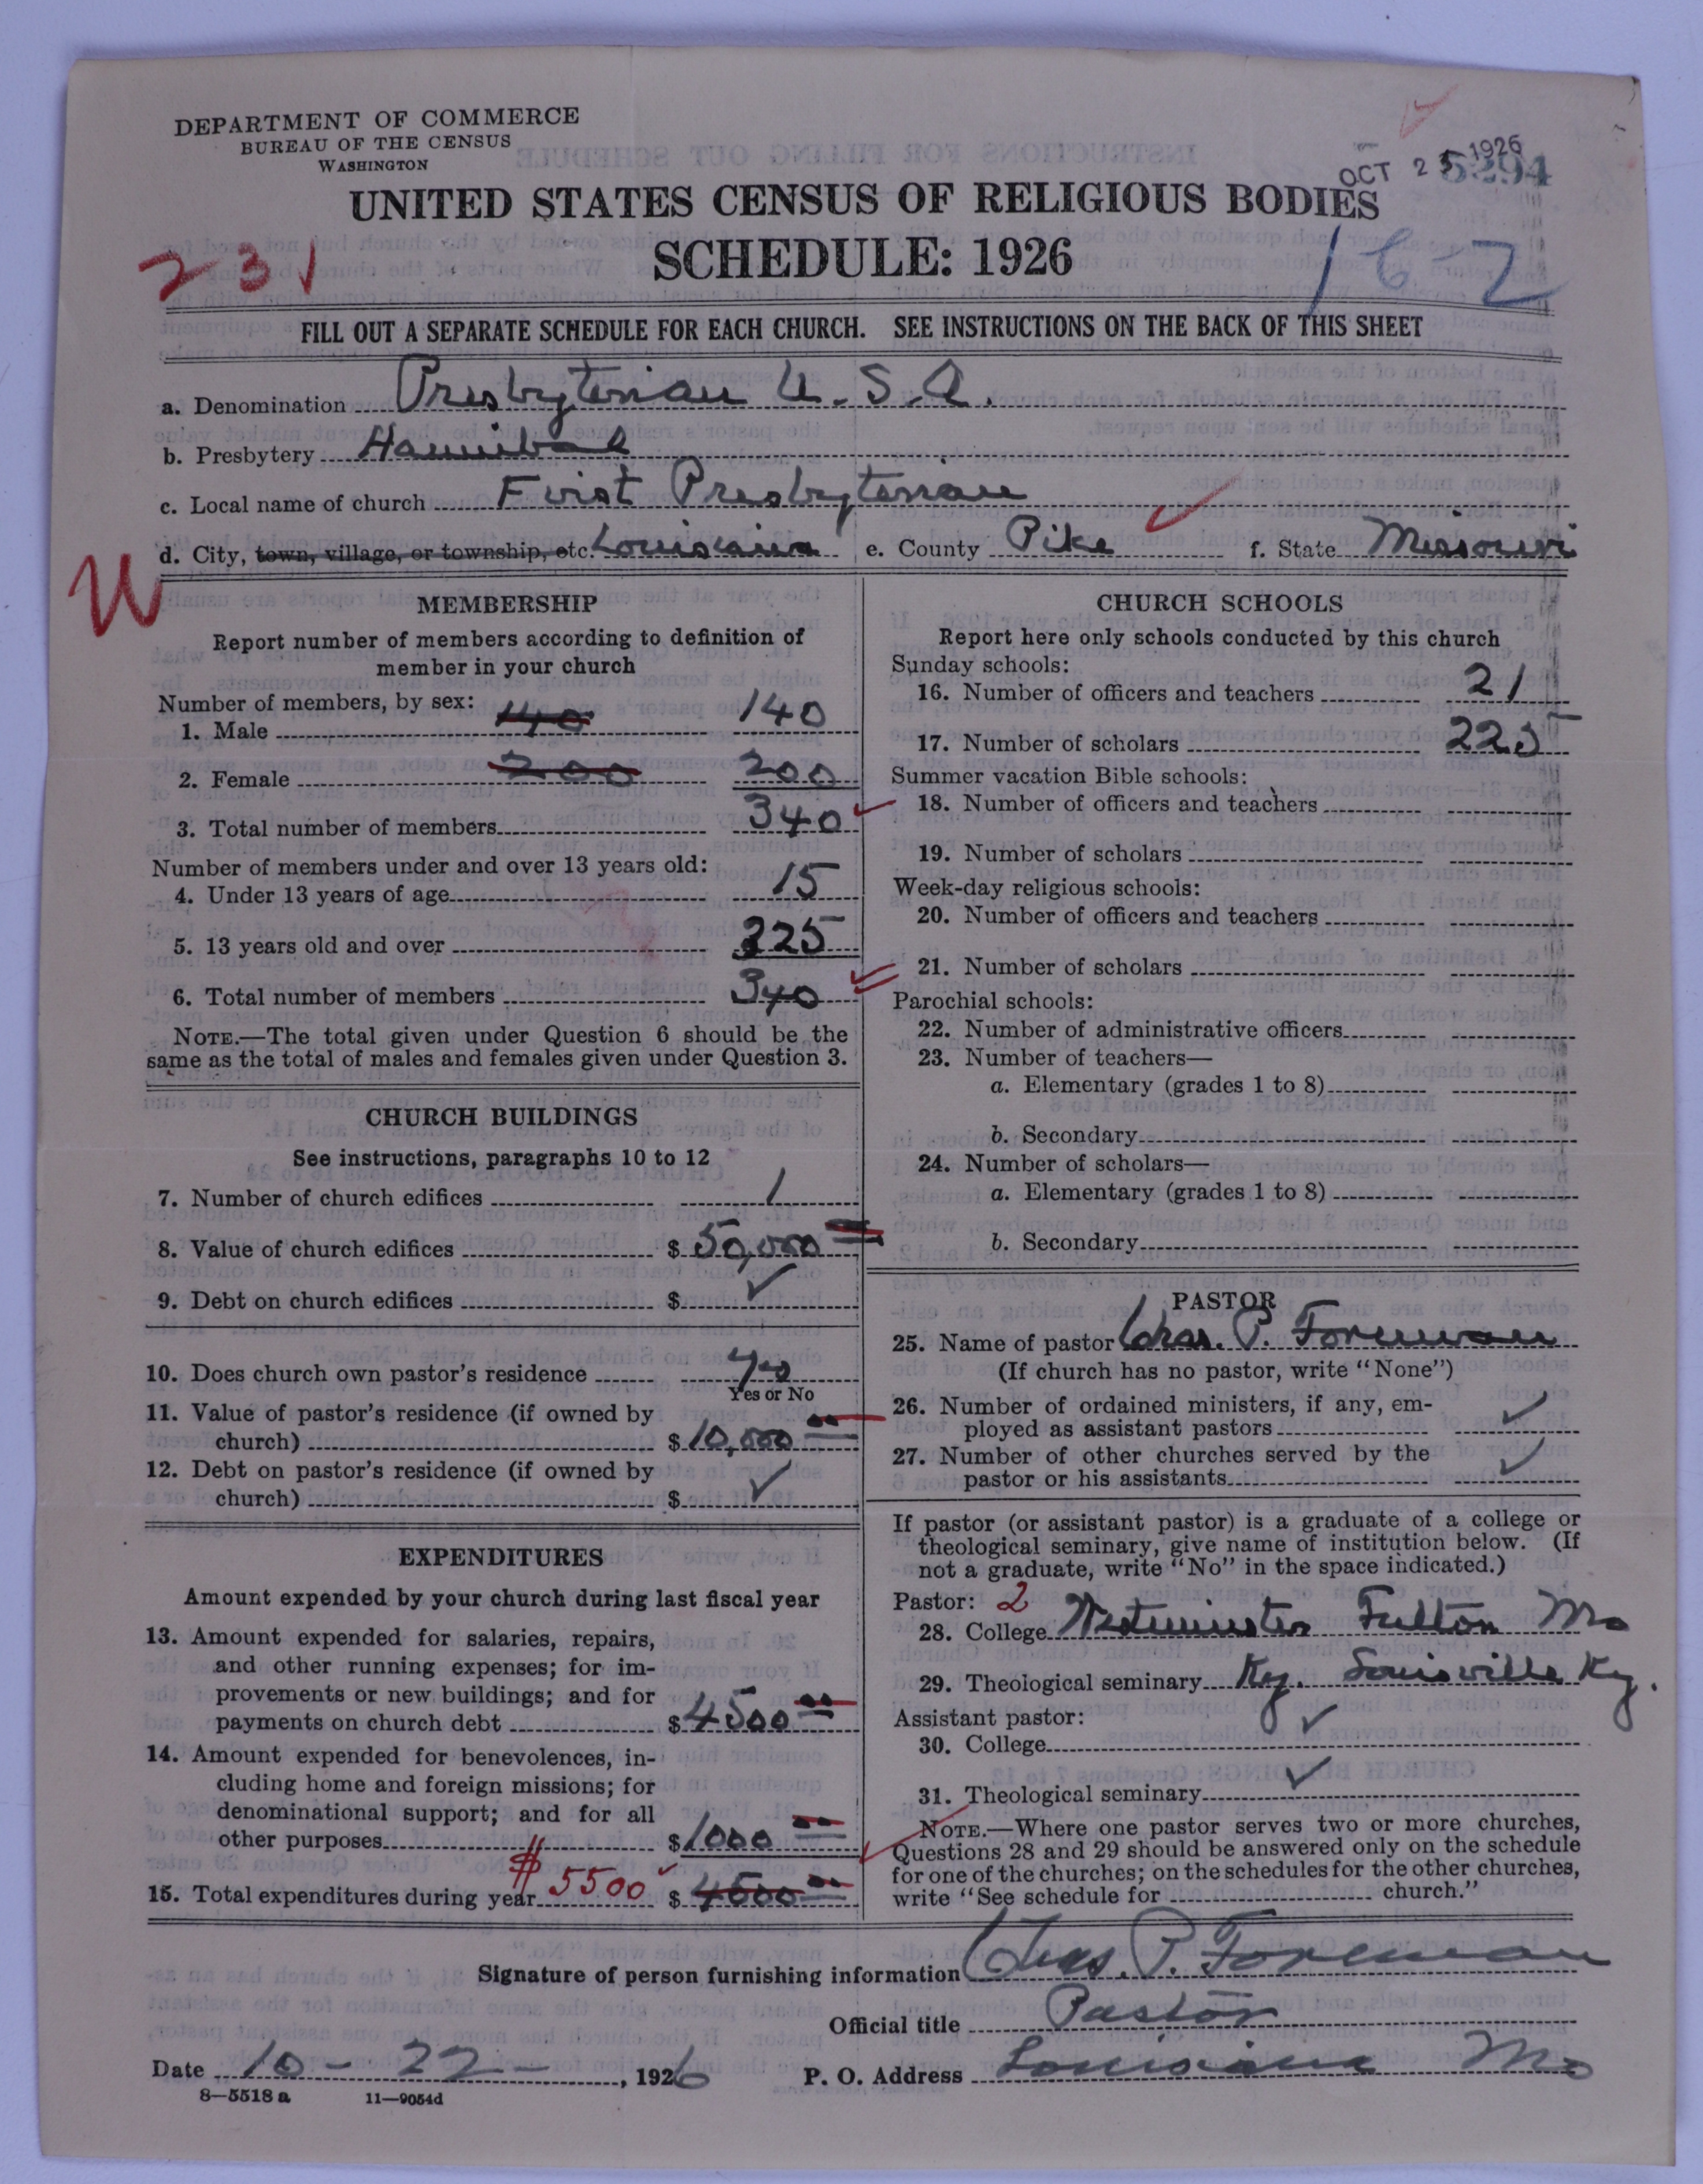 DEPARTMENT OF COMMERCE
BUREAU OF THE CENSUS
WASHINGTON
OCT 25 1926
5294
UNITED STATES CENSUS OF RELIGIOUS BODIES
SCHEDULE: 1926
231
16-2
FILL OUT A SEPARATE SCHEDULE FOR EACH CHURCH. SEE INSTRUCTIONS ON THE BACK OF THIS SHEET
a. Denomination Presbyterian U.S.A.
b. Presbytery Hannibal
c. Local name of church First Presbyterian
d. City, town, village, or township, etc. Louisiana e. County Pike f. State Missouri
W
MEMBERSHIP
Report number of members according to definition of
member in your church
Number of members, by sex:
1. Male 140 140
2. Female 200 200
3. Total number of members 340
Number of members under and over 13 years old:
4. Under 13 years of age 15
5. 13 years old and over 325
6. Total number of members 340
NOTE.—The total given under Question 6 should be the
same as the total of males and females given under Question 3.
CHURCH BUILDINGS
See instructions, paragraphs 10 to 12
7. Number of church edifices 1
8. Value of church edifices $ 50,000
9. Debt on church edifices $ ✓
10. Does church own pastor's residence Yes
Yes or No
11. Value of pastor's residence (if owned by
church) $ 10,000
12. Debt on pastor's residence (if owned by
church) $ ✓
EXPENDITURES
Amount expended by your church during last fiscal year
13. Amount expended for salaries, repairs,
and other running expenses; for im-
provements or new buildings; and for
payments on church debt $ 4500
14. Amount expended for benevolences, in-
cluding home and foreign missions; for
denominational support; and for all
other purposes $ 1000
15. Total expenditures during year $5500 $ 4500
CHURCH SCHOOLS
Report here only schools conducted by this church
Sunday schools:
16. Number of officers and teachers 21
17. Number of scholars 225
Summer vacation Bible schools:
18. Number of officers and teachers
19. Number of scholars
Week-day religious schools:
20. Number of officers and teachers
21. Number of scholars
Parochial schools:
22. Number of administrative officers
23. Number of teachers—
a. Elementary (grades 1 to 8)
b. Secondary
24. Number of scholars—
a. Elementary (grades 1 to 8)
b. Secondary
PASTOR
25. Name of pastor Chas. P. Foreman
(If church has no pastor, write "None")
26. Number of ordained ministers, if any, em-
ployed as assistant pastors ✓
27. Number of other churches served by the
pastor or his assistants ✓
If pastor (or assistant pastor) is a graduate of a college or
theological seminary, give name of institution below. (If
not a graduate, write "No" in the space indicated.)
Pastor: 2
28. College Westminster Fulton Mo
29. Theological seminary Ky. Louisville Ky.
Assistant pastor: ✓
30. College
31. Theological seminary ✓
NOTE.—Where one pastor serves two or more churches,
Questions 28 and 29 should be answered only on the schedule
for one of the churches; on the schedules for the other churches,
write "See schedule for church."
Signature of person furnishing information Chas. P. Foreman
Official title Pastor
Date 10-22-, 1926 P. O. Address Louisiana Mo
8—5518 a 11—9054d